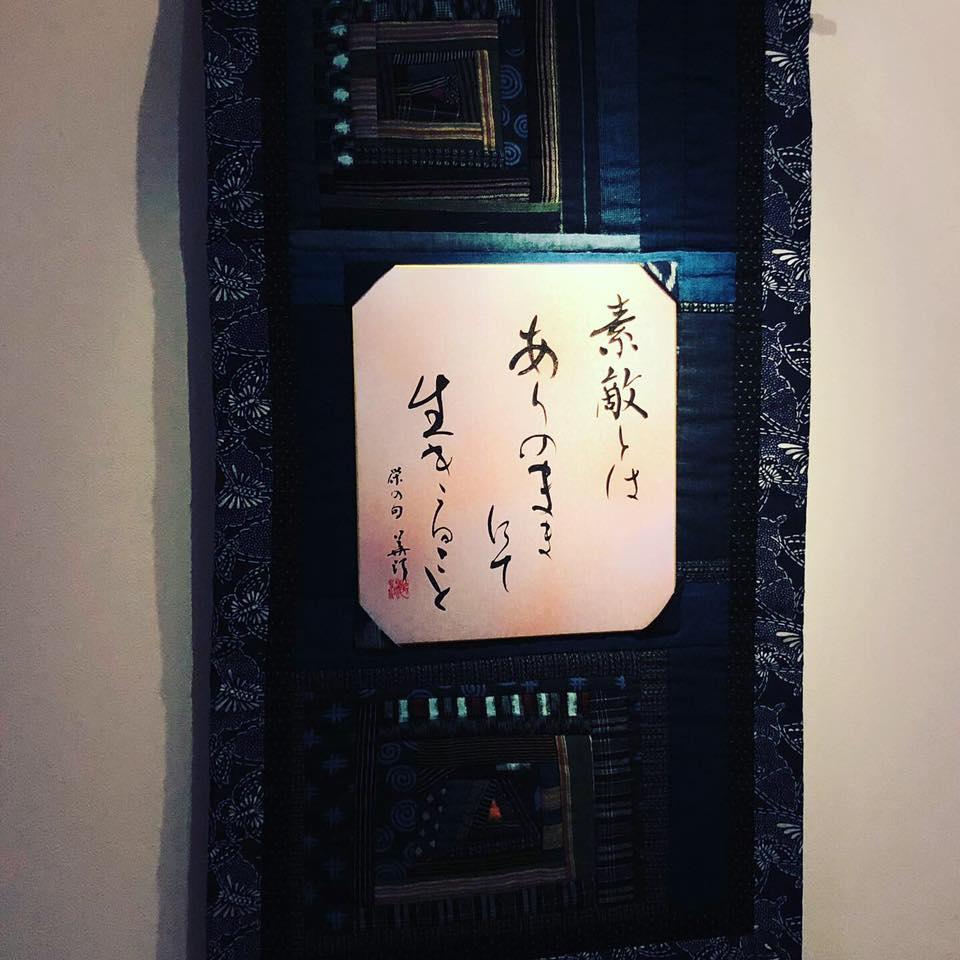 素敵とは
ありのまま
にて
生きること
栄の句